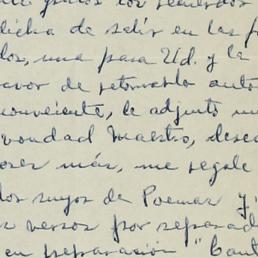 los recuerdos
dicha de salir en las f
dos, una para Ud. y la
avor de retornarla auto
conveniente, le adjunto un
vondad Maestro, dese
oser más, me regale
dos suyos de Poemas y,
s versos por separad
en preparación "Cant